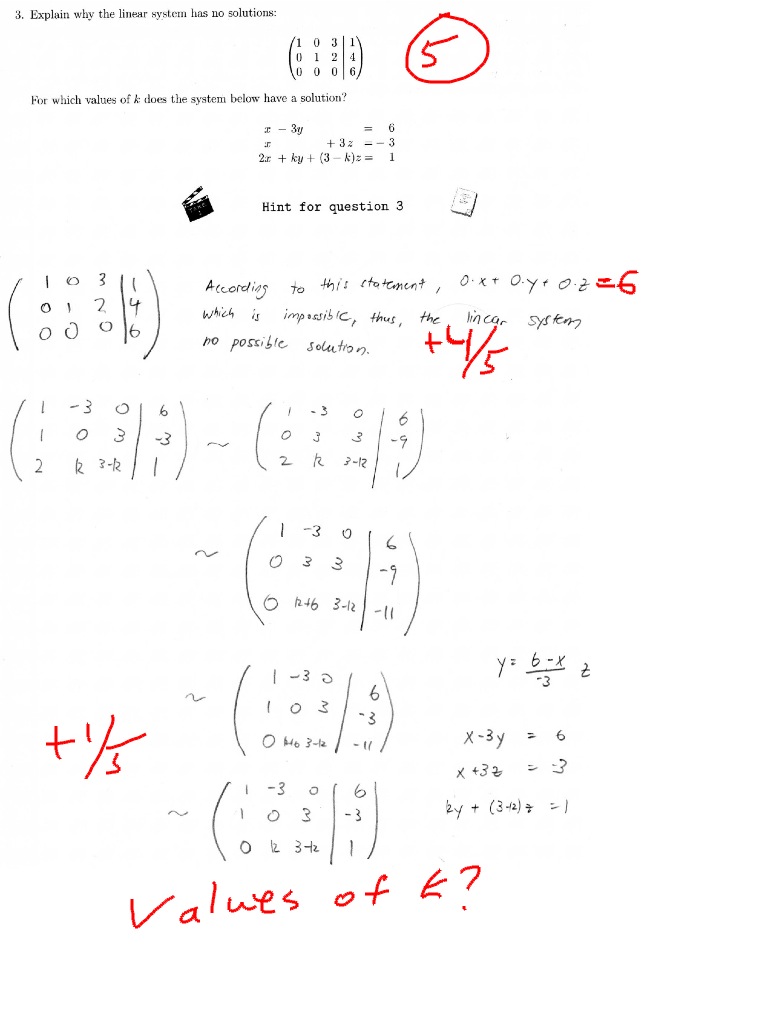 3. Explain why the linear system has no solutions:
1 0 3 | 1
0 1 2 | 4
0 0 0 | 6
5
For which values of k does the system below have a solution?
x − 3y = 6
x + 3z = − 3
2x + ky + (3 − k)z = 1
Hint for question 3
1 0 3 | 1
0 1 2 | 4
0 0 0 | 6
According to this statement, 0·x + 0·y + 0·z = 6
which is impossible, thus, the linear system
no possible solution.
+4/5
1 -3 0 | 6
1 0 3 | -3
2 k 3-k | 1
~
1 -3 0 | 6
0 3 3 | -9
2 k 3-k | 1
~
1 -3 0 | 6
0 3 3 | -9
0 k+6 3-k | -11
~
1 -3 0 | 6
1 0 3 | -3
0 k+6 3-k | -11
y = 6-x/-3 z
x-3y = 6
x+3z = -3
ky + (3-k)z = 1
+1/5
~
1 -3 0 | 6
1 0 3 | -3
0 k 3-k | 1
Values of k?